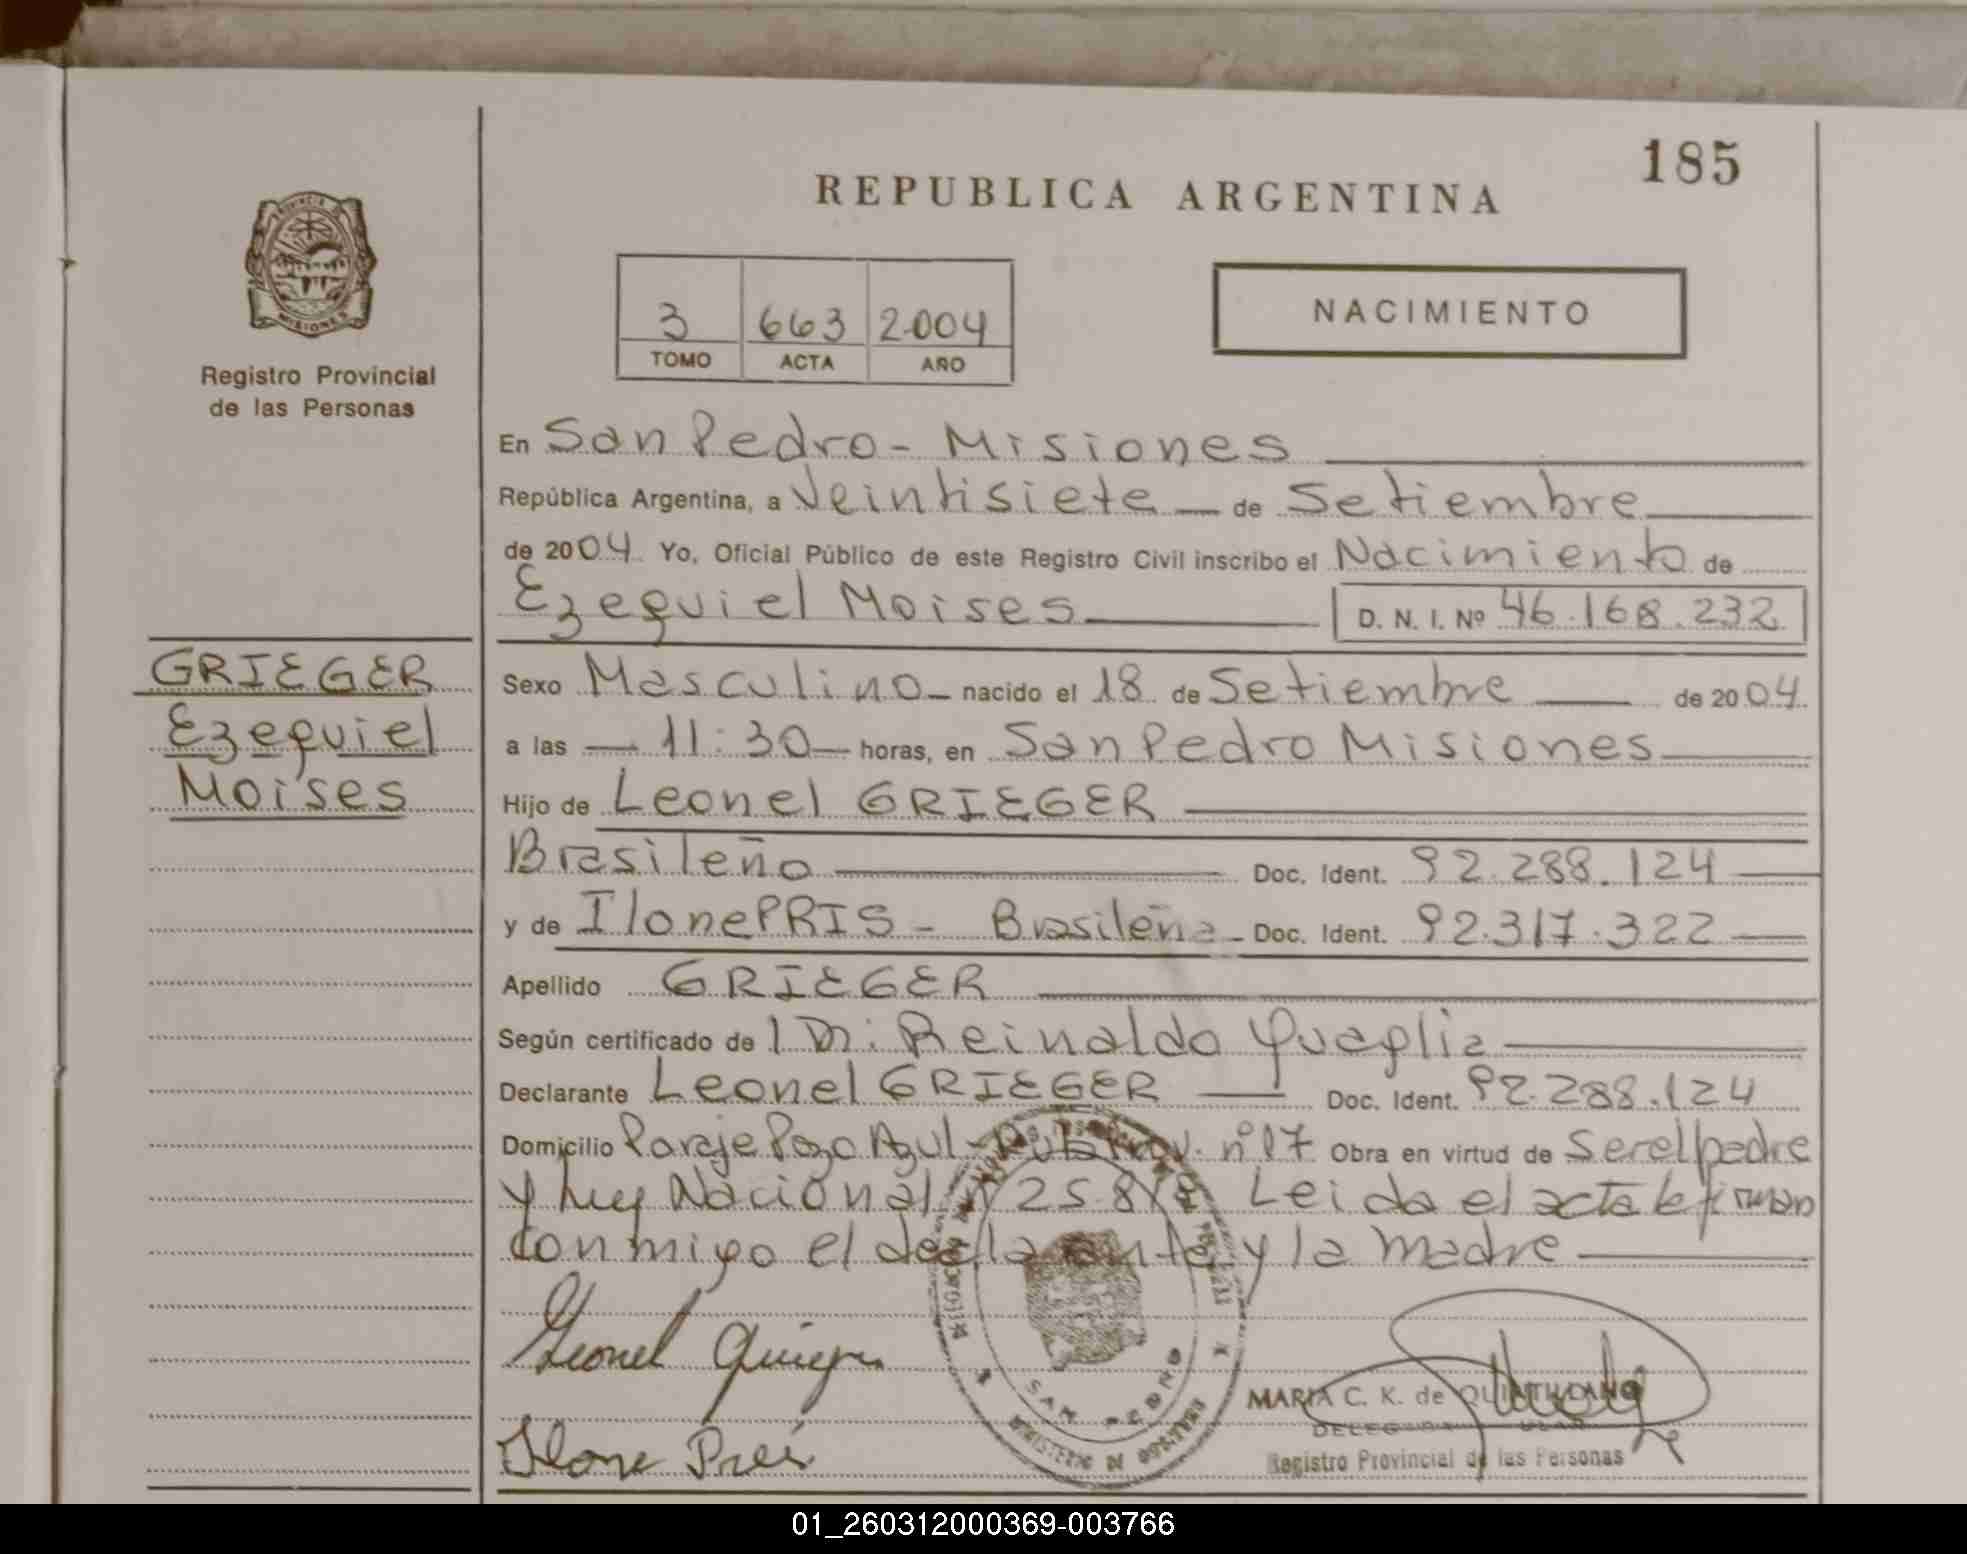 185
REPUBLICA ARGENTINA
PROVINCIA
MISIONES
Registro Provincial
de las Personas
3 663 2004
TOMO ACTA AÑO
NACIMIENTO
En San Pedro - Misiones
República Argentina, a Veintisiete de Setiembre
de 2004 Yo, Oficial Público de este Registro Civil inscribo el Nacimiento de
Ezequiel Moises D. N. I. Nº 46.168.232
GRIEGER
Ezequiel
Moises
Sexo Masculino - nacido el 18 de Setiembre de 2004
a las 11:30 horas, en San Pedro Misiones
Hijo de Leonel GRIEGER
Brasileño Doc. Ident. 92.288.124
y de Ilone PRIS - Brasileña - Doc. Ident. 92.317.322
Apellido GRIEGER
Según certificado de Dr. Reinaldo Quaglia
Declarante Leonel GRIEGER Doc. Ident. 92.288.124
Domicilio Paraje Pozo Azul - Ruta Prov. nº 17 Obra en virtud de Ser el padre
y Ley Nacional Leida el acta la firman
conmigo el declarante y la madre
Leonel
Ilone
SAN PEDRO
MARIA C. K. de
Registro Provincial de las Personas
01_260312000369-003766